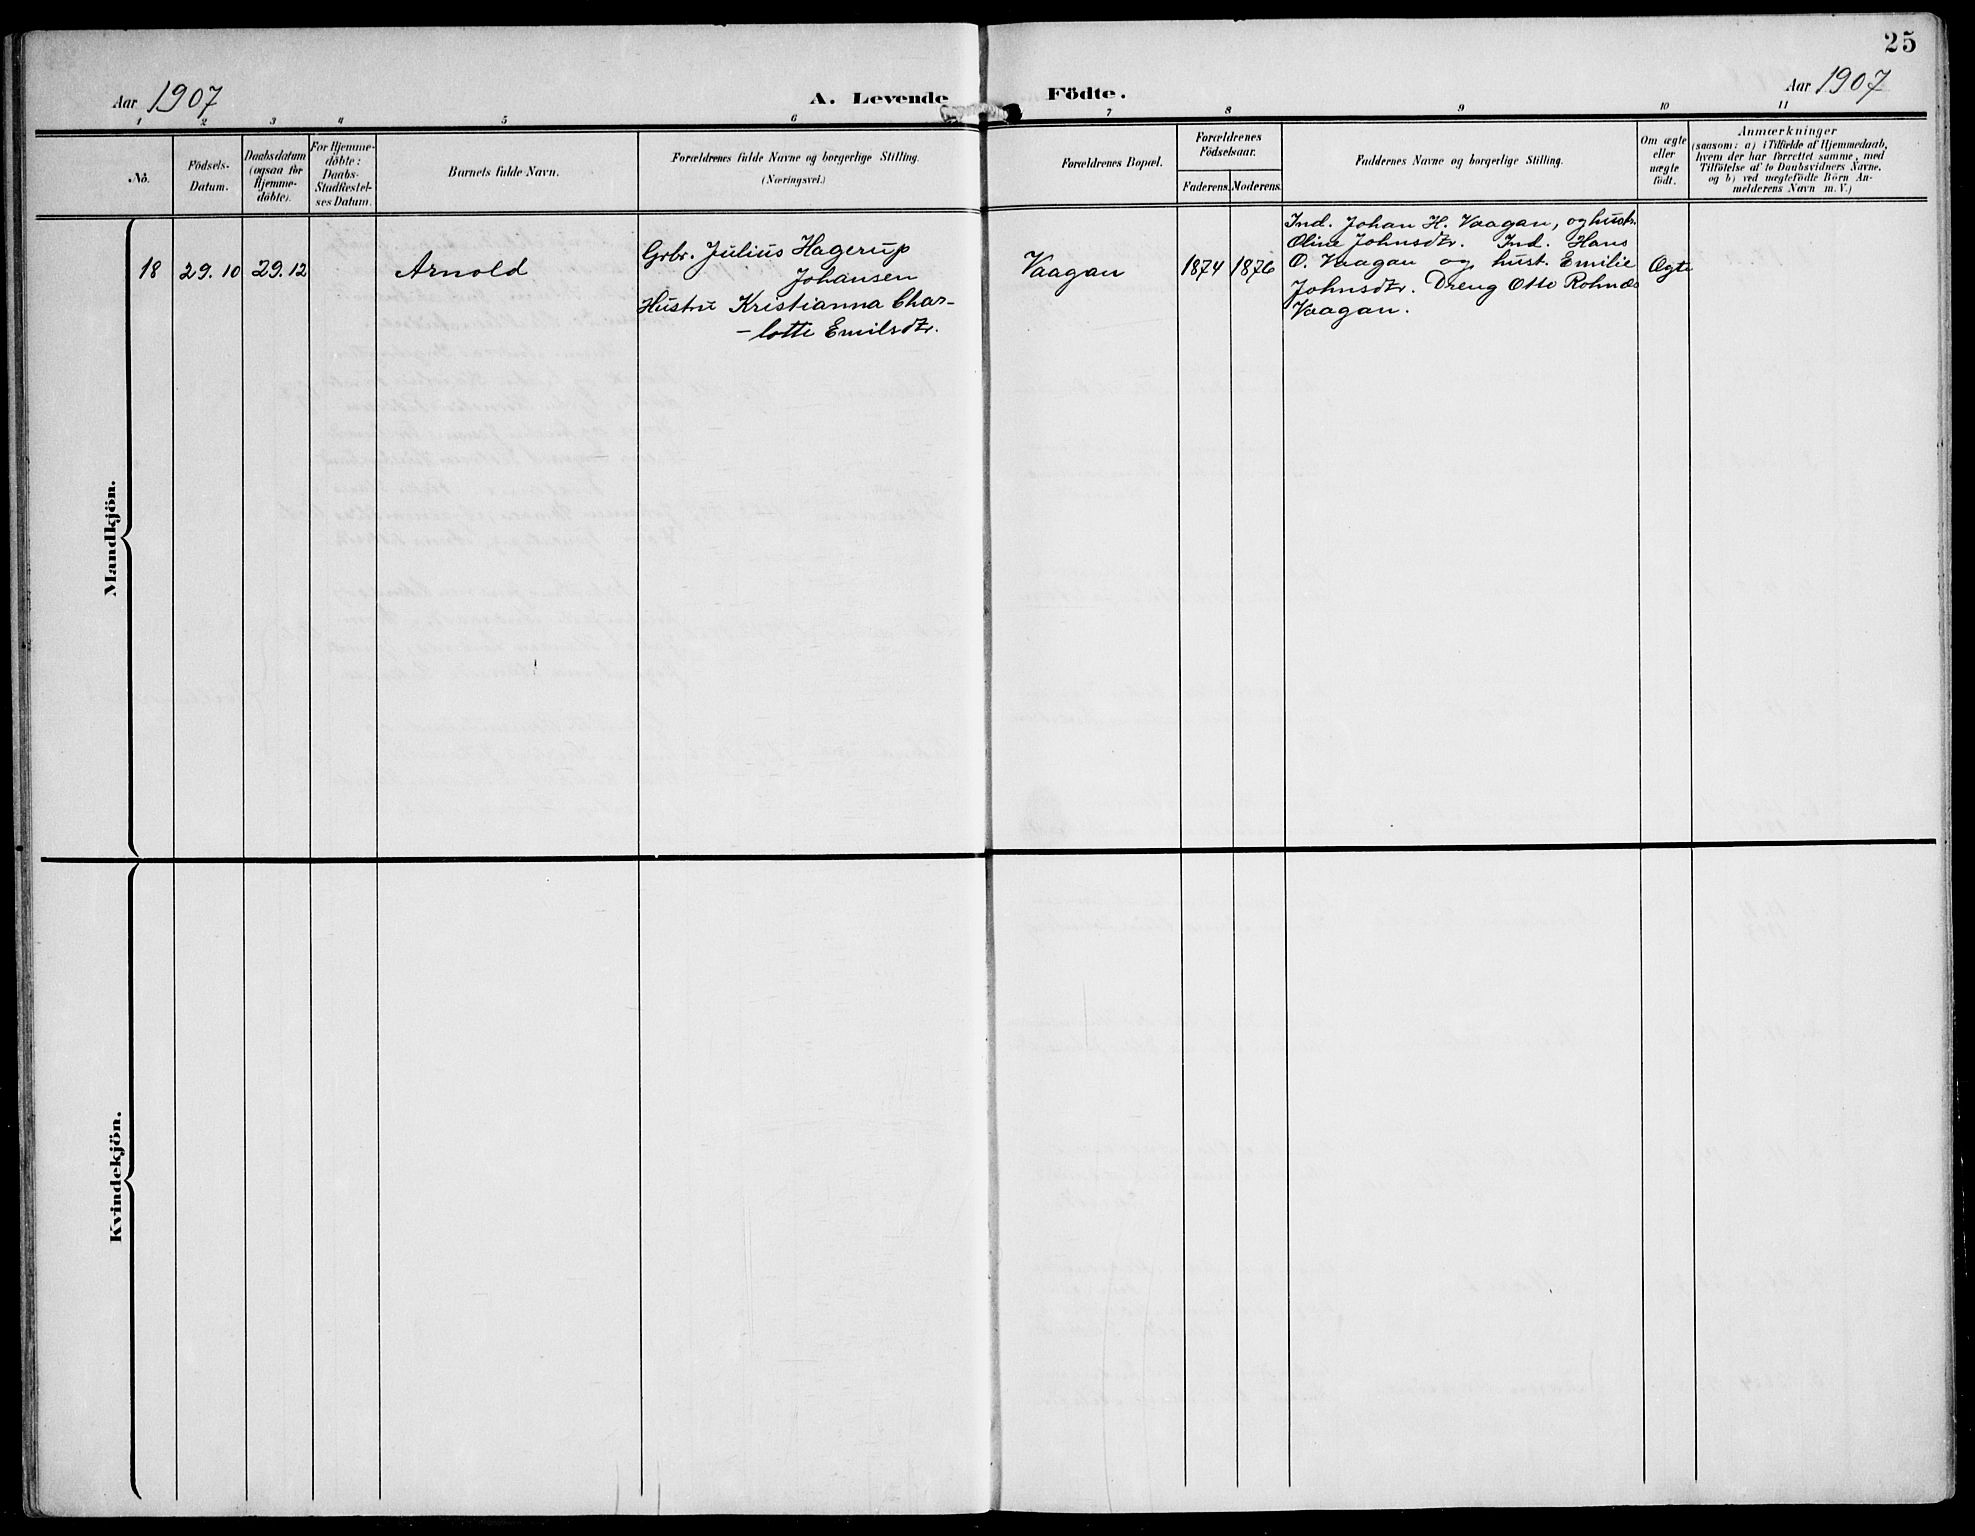 25
Aar 1907
A. Levende Födte.
Aar 1907
1 2 3 4 5 6 7 8 9 10 11
No.
Födsels-
Datum.
Daabsdatum
(ogsaa for
Hjemme-
döbte).
For Hjemme-
döbte:
Daabs-
Stadfæstel-
ses Datum.
Barnets fulde Navn.
Forældrenes fulde Navne og borgerlige Stilling.
(Næringsvei.)
Forældrenes Bopæl.
Forældrenes
Födselsaar.
Faderens. Moderens.
Faddernes Navne og borgerlige Stilling.
Om ægte
eller
uægte
født.
Anmærkninger
(saasom: a) i Tilfælde af Hjemmedaab,
hvem der har forrettet samme, med
Tilföielse af to Daabsvidners Navne,
og b) ved uægtefödte Börn An-
melderens Navn m. V.)
Mandkjön.
18
29. 10
29. 12
Arnold
Grbr. Julius Hagerup
Johansen
Hustru Kristianna Char-
-lotte Emilsdtr.
Vaagan
1874
1876
Ind. Johan H. Vaagan, og hustr.
Oline Johnsdtr. Ind. Hans
O. Vaagan og hust. Emilie
Johnsdtr. Dreng Otto Rohnæs
Vaagan.
Ægte
Kvindekjön.